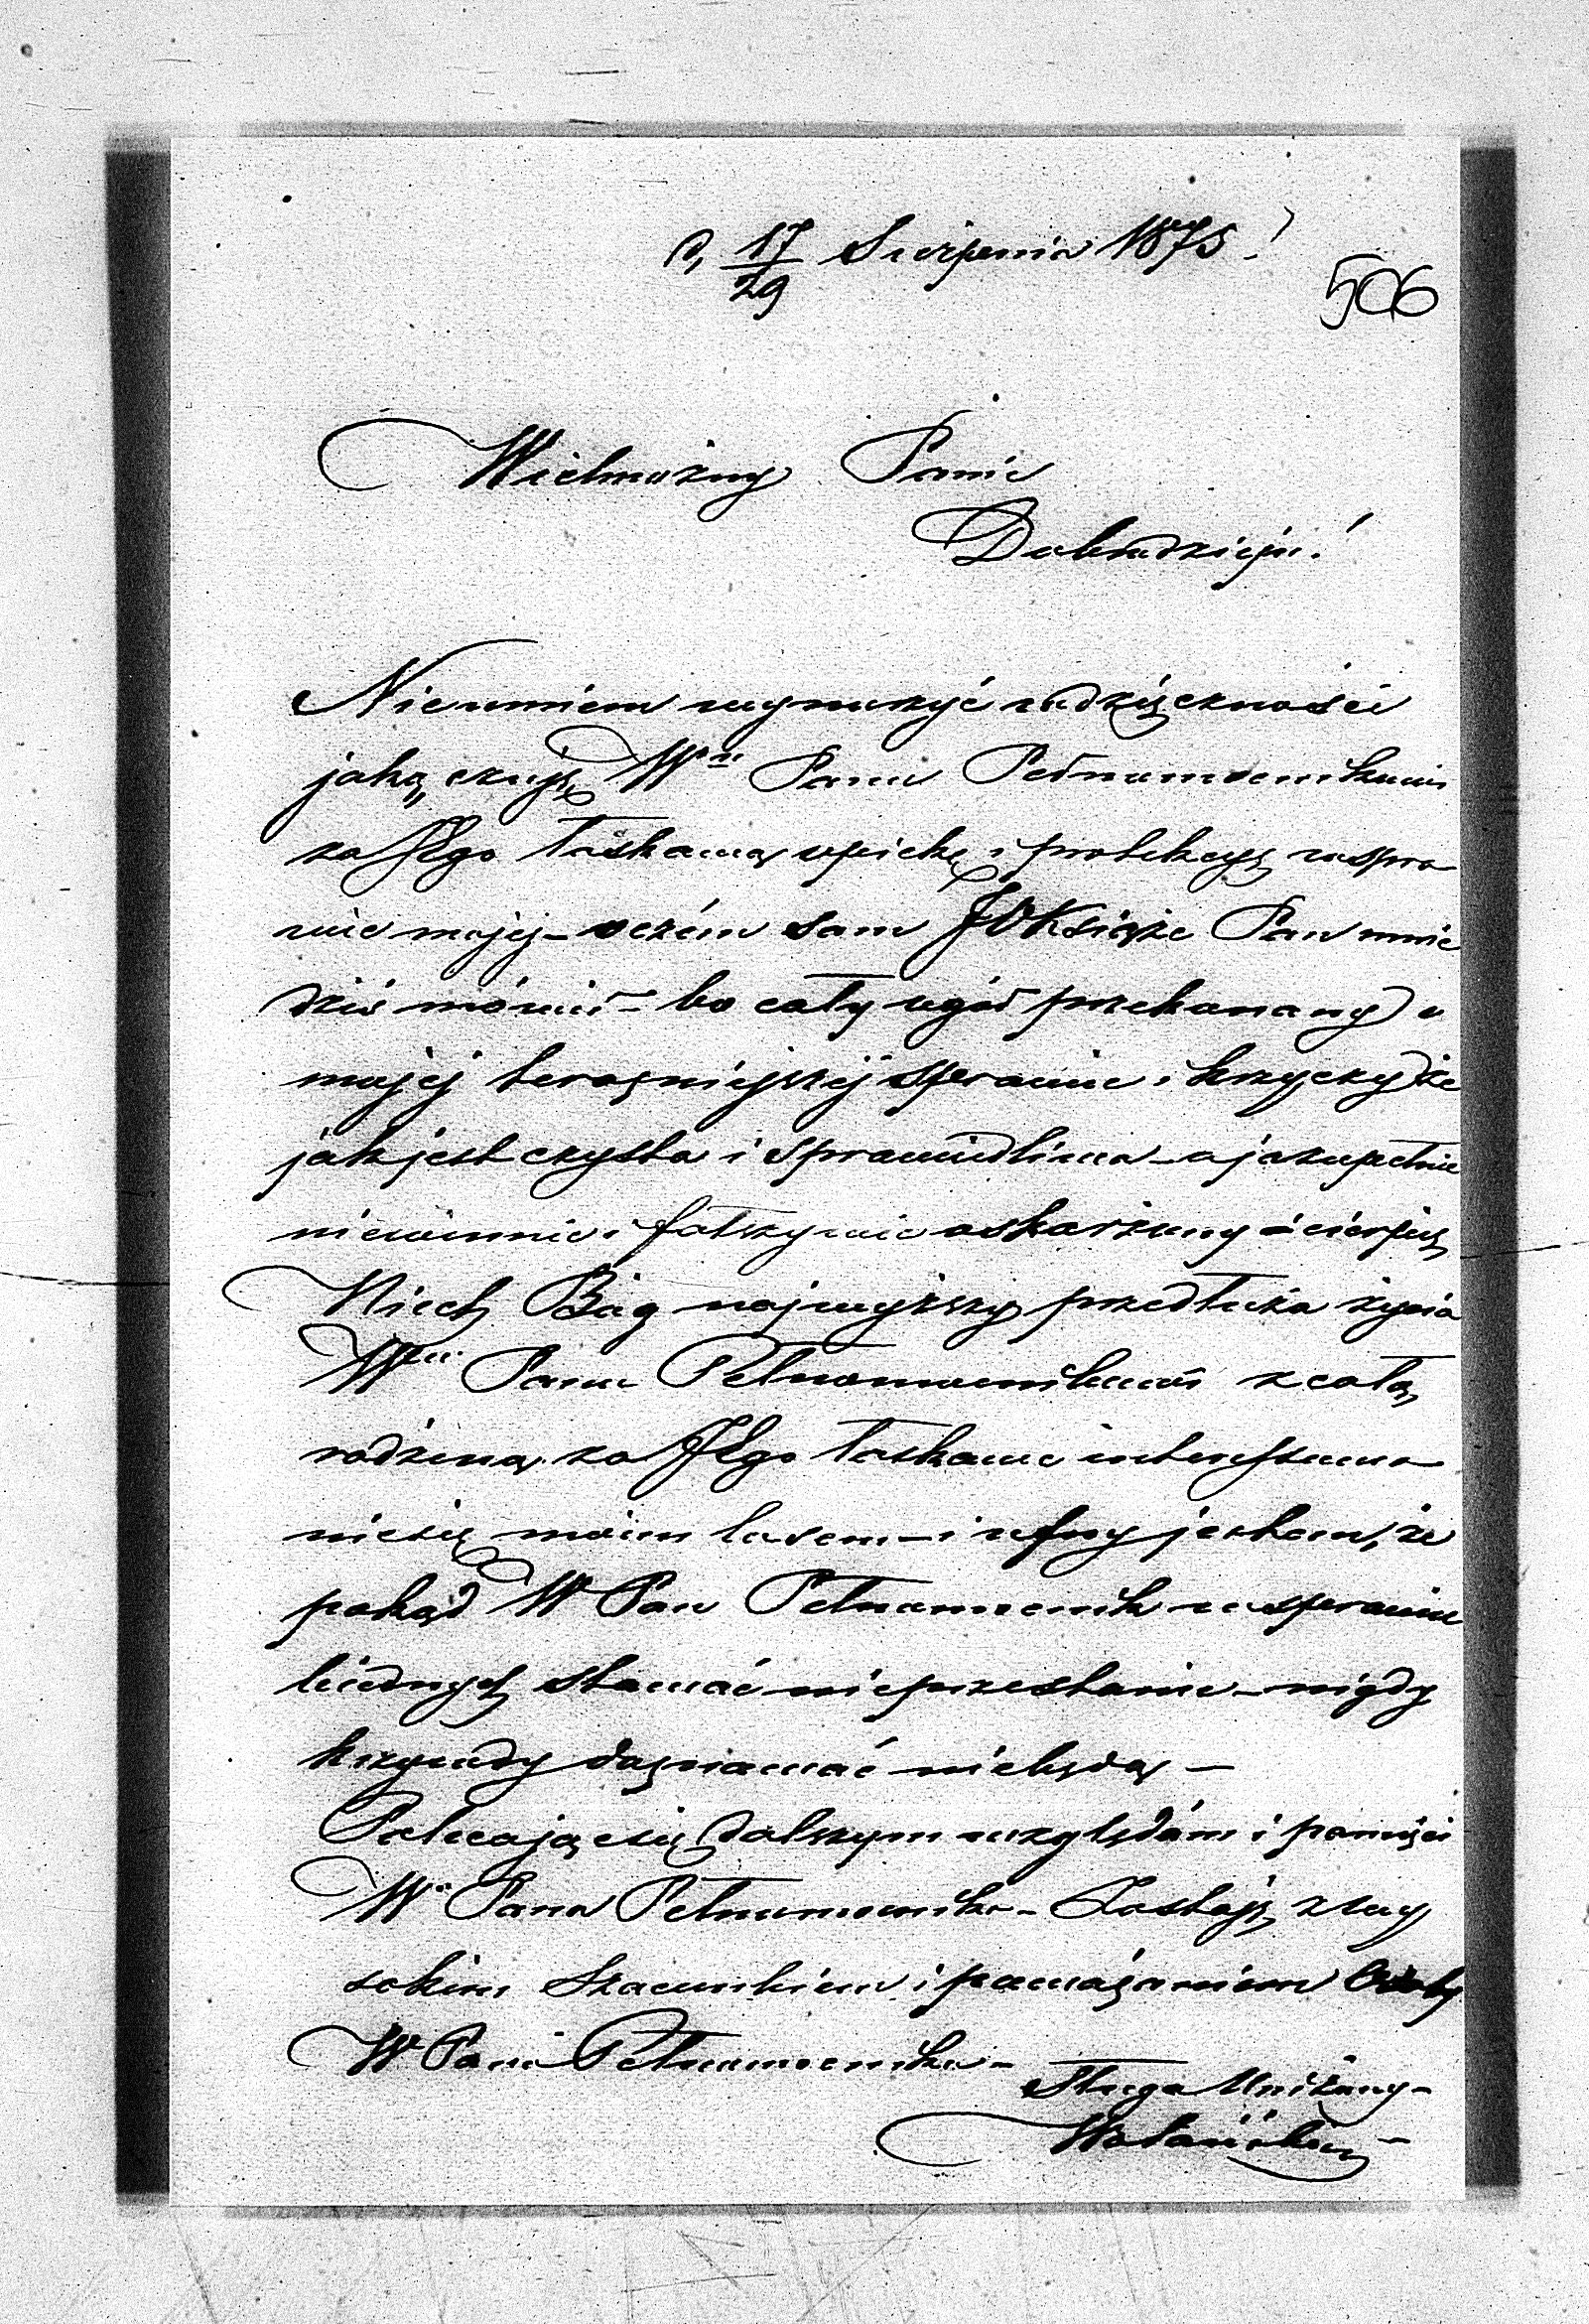 d, 17/29 Sierpnia 1875.
506
Wielmożny Panie
Dobrodzieju!
Nieumiem wynurzyć wdzięczności
jaką czuję Wmu Panu Pełnomocnikowi
za JEgo łaskawą opiekę i protekcyę wspra-
wie mojej – oczém sam JOKsiąże Pan mnie
dziś mówił – bo cały ogół przekonany o
mojéj teraźniejszéj sprawie i krzyczy że
jak jest czysta i sprawiedliwa – a ja zupełnie
niewinnie i fałszywie oskarżony cierpię
Niech Bóg najwyższy przedłuża życia
Wmu Panu Pełnomocnikowi zcałą
rodziną za JEgo łaskawe interessowa
niesię moim losem – i ufny jestem, że
pokąd W Pan Pełnomocnik wsprawie
biednych stawać nieprzestanie – nigdy
krzywdy doznawać niebędą –
Polecającsię dalszym względóm i pamięci
W Pana Pełnomocnika – Zostaję zwy
sokim szacunkiem i poważaniem Osoby
W Pana Pełnomocnika –
Sługa Uniżony –